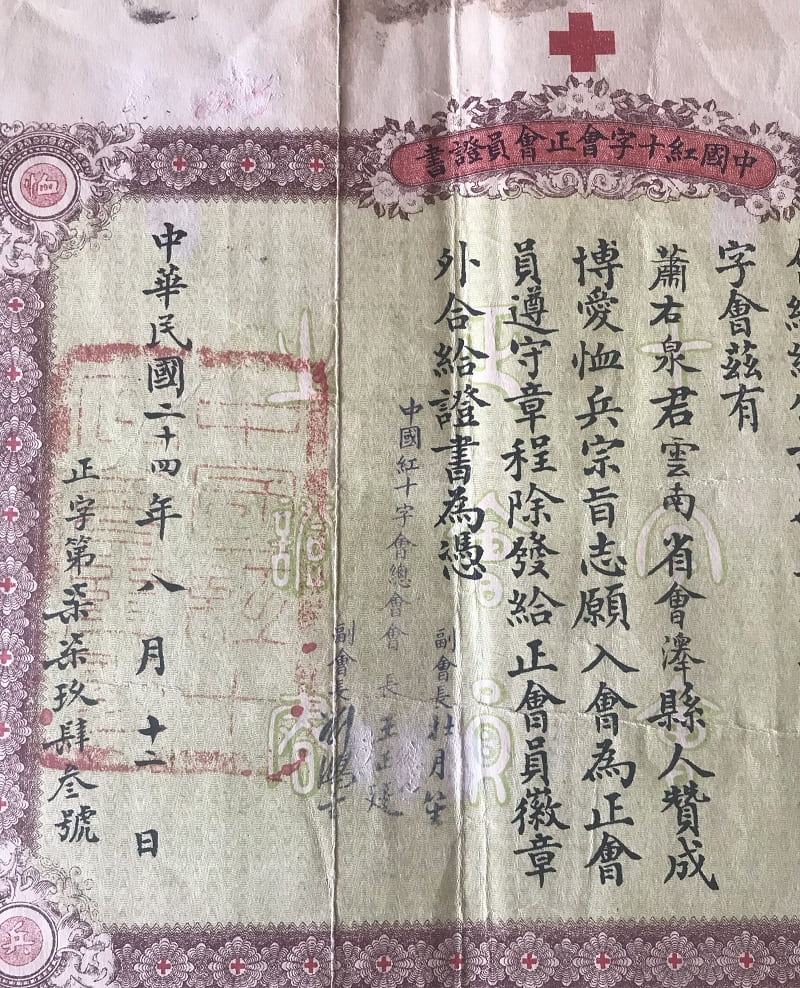 中國紅十字會正會員證書
字會茲有
蕭右泉君雲南省會澤縣人贊成
博愛恤兵宗旨志願入會為正會
員遵守章程除發給正會員徽章
外合給證書為憑
副會長杜月笙
中國紅十字會總會會長王正廷
副會長劉鴻生
中華民國二十四年八月十二日
正字第柒柒玖肆叁號
兵